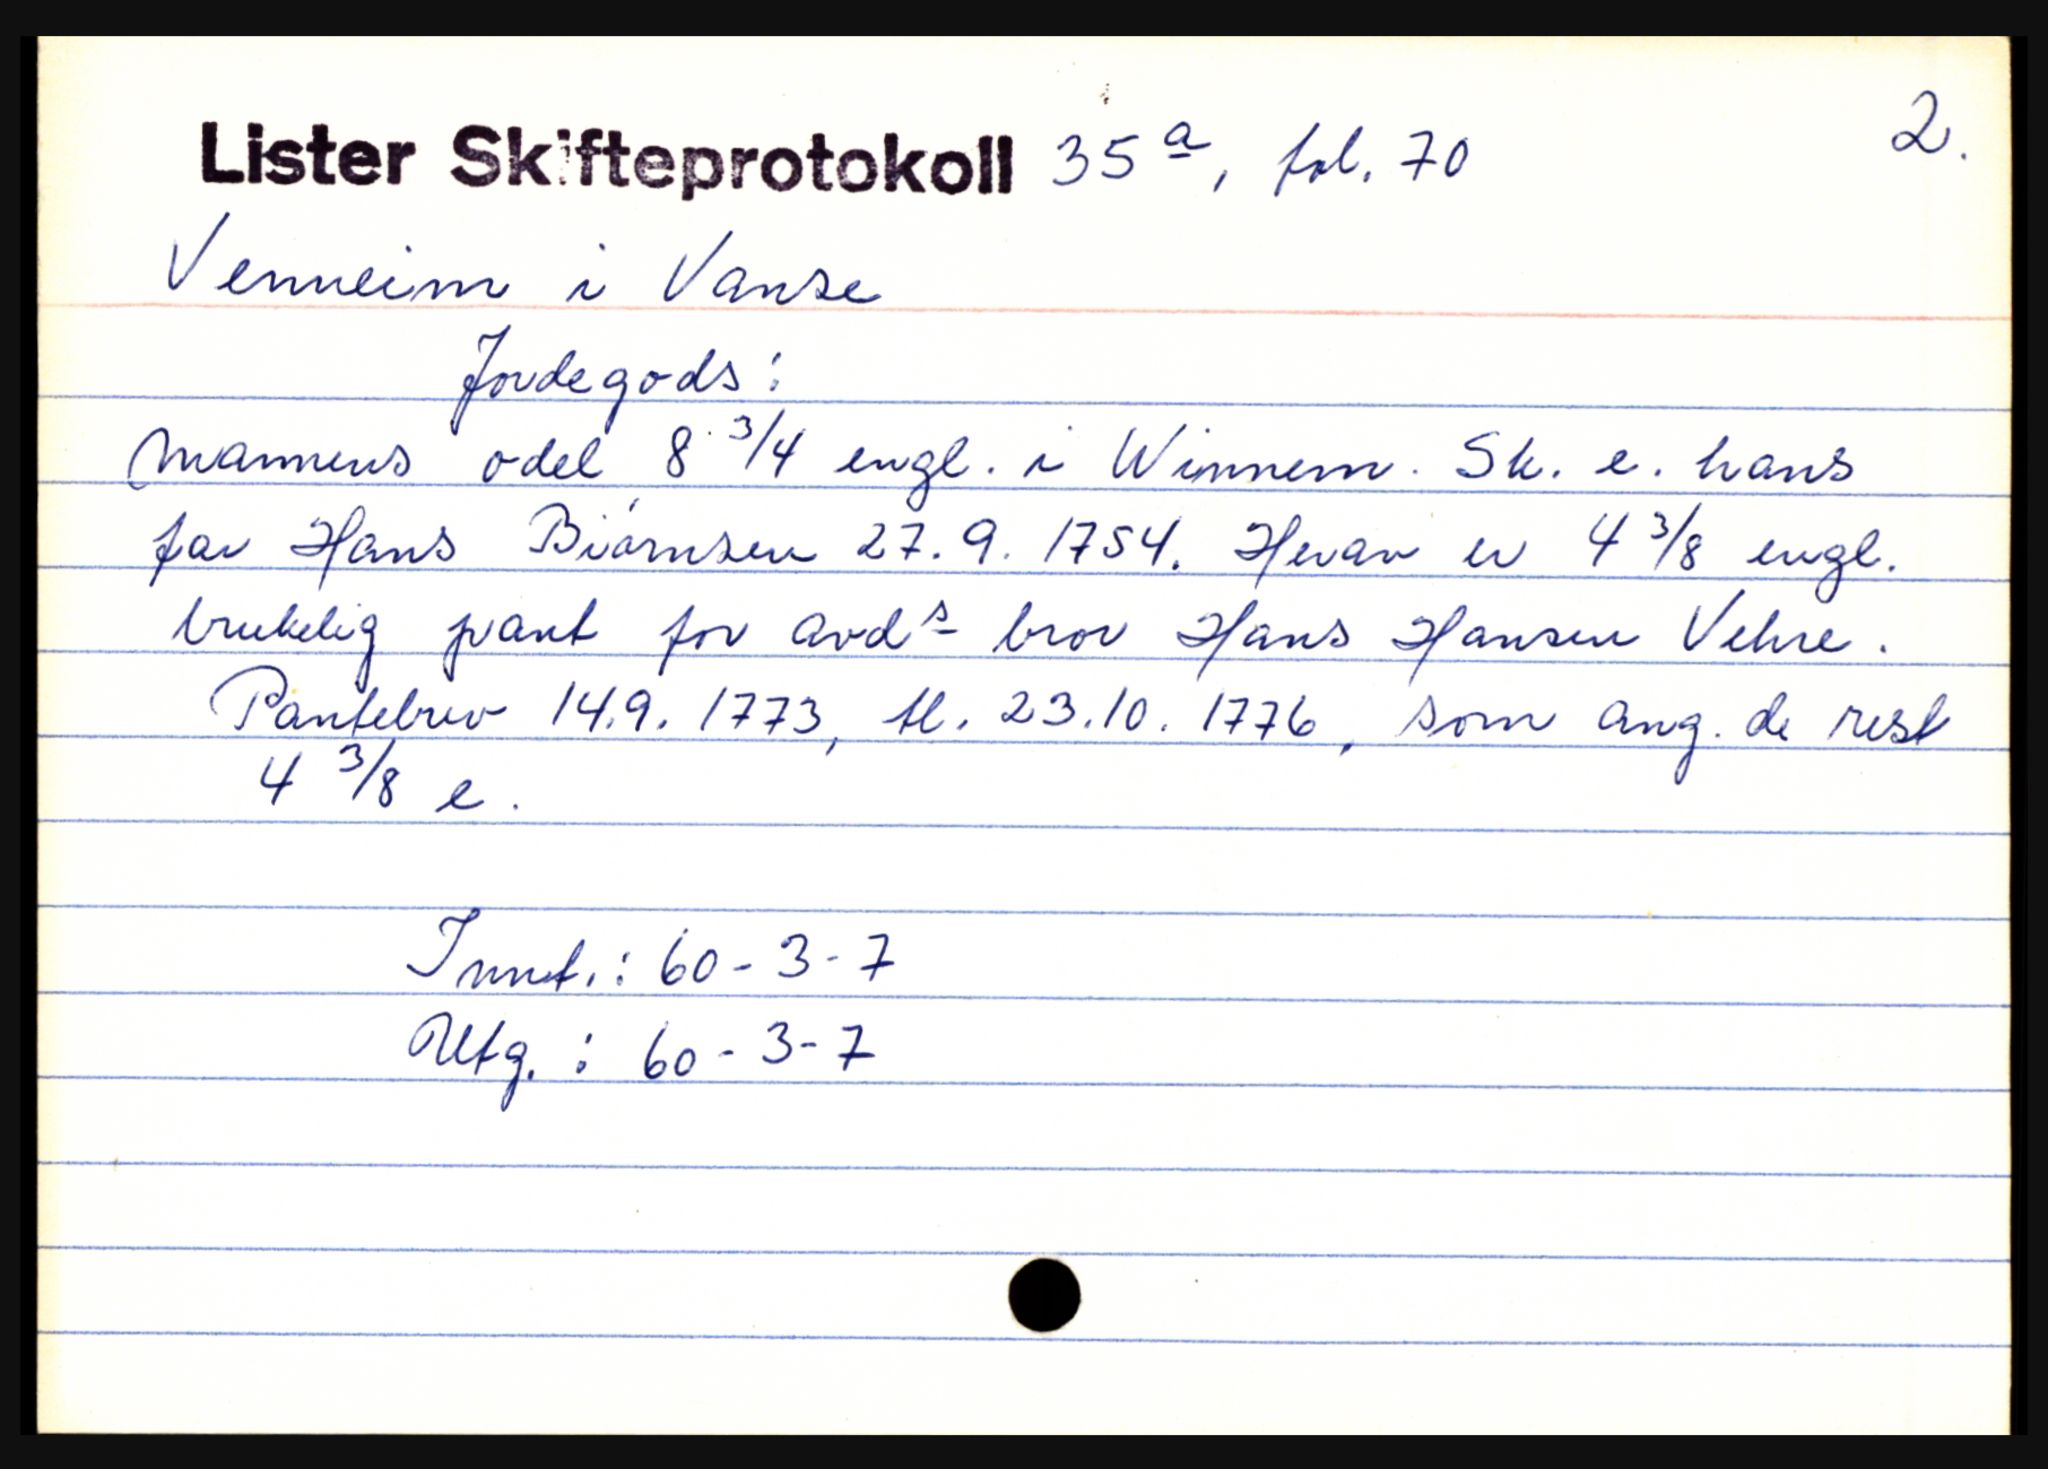 Lister Skifteprotokoll 35a, fol. 70 2.
Venneim i Vanse
Jordegods:
Mannens odel 8 3/4 engl. i Winnem. Sk. e. hans
far Hans Biórnsen 27.9. 1754. Herav er 4 3/8 engl.
brukelig pant for avds bror Hans Hansen Vehre.
Pantebrev 14.9. 1773, tl. 23.10. 1776, som ang. de rest
4 3/8 e.
Innt.: 60-3-7
Utg.: 60-3-7